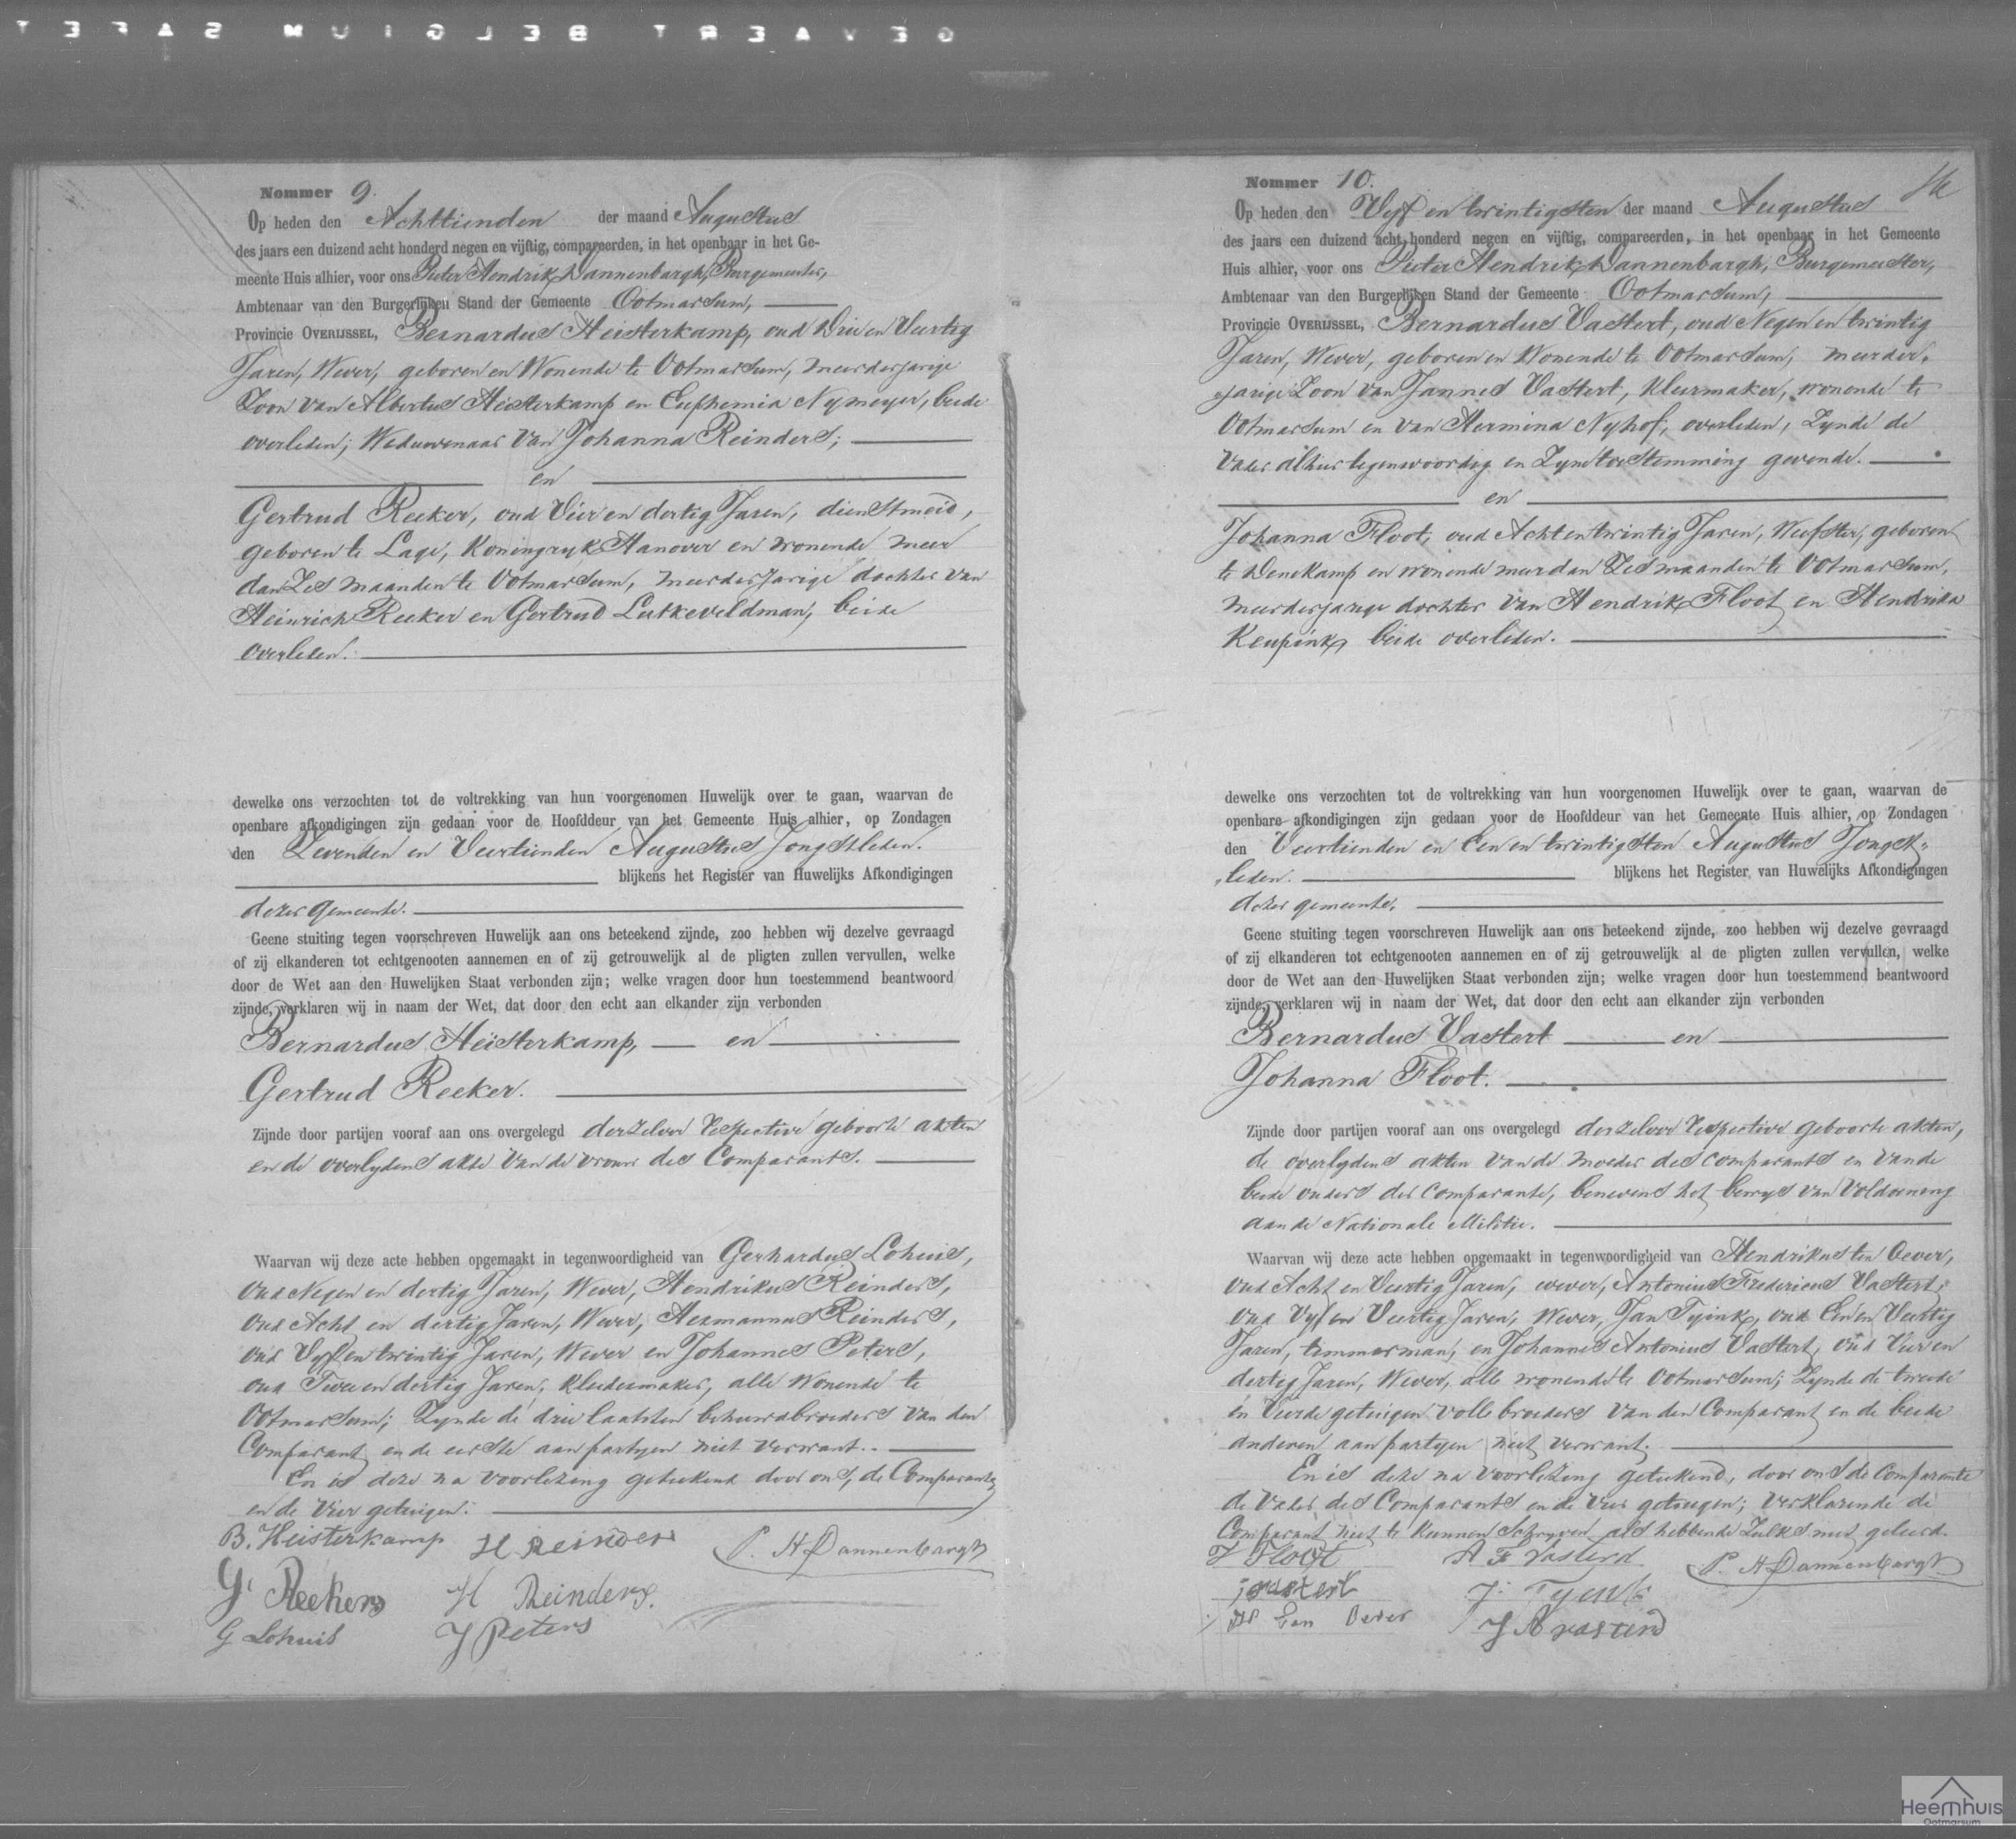 GEVAERT BELGIUM SAFET
Nommer 9.
Op heden den Achttienden der maand Augustus
des jaars een duizend acht honderd negen en vijftig, compareerden, in het openbaar in het Ge-
meente Huis alhier, voor ons Pieter Hendrik Dannenbargh, Burgemeester,
Ambtenaar van den Burgerlijken Stand der Gemeente Ootmarsum,
Provincie OVERIJSSEL, Bernardus Heisterkamp, oud Drie en Veertig
Jaren, Wever, geboren en Wonende te Ootmarsum, meerderjarige
Zoon van Albertus Heisterkamp en Euphemia Nymeyer, beide
overleden; Weduwenaar van Johanna Reinders;
en
Gertrud Reeker, oud Vier en dertig Jaren, dienstmeid,
geboren te Lage, Koningryk Hanover en wonende meer
dan Zes maanden te Ootmarsum, meerderjarige dochter van
Heinrich Reeker en Gertrud Lutkeveldman, beide
overleden.
dewelke ons verzochten tot de voltrekking van hun voorgenomen Huwelijk over te gaan, waarvan de
openbare afkondigingen zijn gedaan voor de Hoofddeur van het Gemeente Huis alhier, op Zondagen
den Zevenden en Veertienden Augustus Jongstleden.
blijkens het Register van Huwelijks Afkondigingen
dezer gemeente.
Geene stuiting tegen voorschreven Huwelijk aan ons beteekend zijnde, zoo hebben wij dezelve gevraagd
of zij elkanderen tot echtgenooten aannemen en of zij getrouwelijk al de pligten zullen vervullen, welke
door de Wet aan den Huwelijken Staat verbonden zijn; welke vragen door hun toestemmend beantwoord
zijnde, verklaren wij in naam der Wet, dat door den echt aan elkander zijn verbonden
Bernardus Heisterkamp, en
Gertrud Reeker.
Zijnde door partijen vooraf aan ons overgelegd derzelver respective geboorte akten
en de overlydens akte van de vrouw des Comparants.
Waarvan wij deze acte hebben opgemaakt in tegenwoordigheid van Gerhardus Lohuis,
oud Negen en dertig Jaren, Wever, Hendrikus Reinders,
oud Acht en dertig Jaren, Wever, Hermannus Reinders,
oud Vyf en twintig Jaren, Wever en Johannes Peters,
oud Twee en dertig Jaren, kleedermaker, alle Wonende te
Ootmarsum; Zynde de drie laatsten behuwdbroeders van den
Comparant en de eerste aan partyen niet verwant.
En is deze na voorlezing geteekend door ons, de Comparanten
en de vier getuigen.
B. Heisterkamp H Reinders P. H Dannenbargh
G. Reekers H Reinders.
G Lohuis J Peters
Nommer 10.
Op heden den Vyf en twintigsten der maand Augustus
des jaars een duizend acht honderd negen en vijftig, compareerden, in het openbaar in het Gemeente
Huis alhier, voor ons Pieter Hendrik Dannenbargh, Burgemeester,
Ambtenaar van den Burgerlijken Stand der Gemeente Ootmarsum,
Provincie OVERIJSSEL, Bernardus Vastert, oud Negen en twintig
Jaren, Wever, geboren en Wonende te Ootmarsum, meerder-
jarige Zoon van Jannes Vastert, kleermaker, wonende te
Ootmarsum en van Hermina Nyhof, overleden, Zynde de
Vader alhier tegenwoordig en Zyn toestemming gevende.
en
Johanna Floot, oud Acht en twintig Jaren, Weefster, geboren
te Denekamp en wonende meer dan Zes maanden te Ootmarsum,
meerderjarige dochter van Hendrik Floot en Hendrika
Keupink, beide overleden.
dewelke ons verzochten tot de voltrekking van hun voorgenomen Huwelijk over te gaan, waarvan de
openbare afkondigingen zijn gedaan voor de Hoofddeur van het Gemeente Huis alhier, op Zondagen
den Veertienden en Een en twintigsten Augustus Jongst-
leden. blijkens het Register van Huwelijks Afkondigingen
dezer gemeente.
Geene stuiting tegen voorschreven Huwelijk aan ons beteekend zijnde, zoo hebben wij dezelve gevraagd
of zij elkanderen tot echtgenooten aannemen en of zij getrouwelijk al de pligten zullen vervullen, welke
door de Wet aan den Huwelijken Staat verbonden zijn; welke vragen door hun toestemmend beantwoord
zijnde, verklaren wij in naam der Wet, dat door den echt aan elkander zijn verbonden
Bernardus Vastert en
Johanna Floot.
Zijnde door partijen vooraf aan ons overgelegd derzelver respective geboorte akten,
de overlydens akten van de moeder des comparants en van de
beide ouders der comparante, benevens het bewys van Voldoening
aan de Nationale Militie.
Waarvan wij deze acte hebben opgemaakt in tegenwoordigheid van Hendrikus ten Oever,
oud Acht en Veertig Jaren, wever, Antonius Fredericus Vastert,
oud Vyf en Veertig Jaren, Wever, Jan Tyink, oud Een en Veertig
Jaren, timmerman, en Johannes Antonius Vastert, oud Vier en
dertig Jaren, Wever, alle wonende te Ootmarsum; Zynde de tweede
en Vierde getuigen volle broeders van den Comparant en de beide
anderen aan partyen niet verwant.
En is deze na voorlezing geteekend, door ons de Comparante
de Vader des Comparants en de vier getuigen; verklarende de
Comparant niet te kunnen Schryven als hebbende Zulks niet geleerd.
J Floot A F Vasterd P. H Dannenbargh
J Vastert J. Tyenk
H ten Oever J A Vasterd
Heemhuis
Ootmarsum